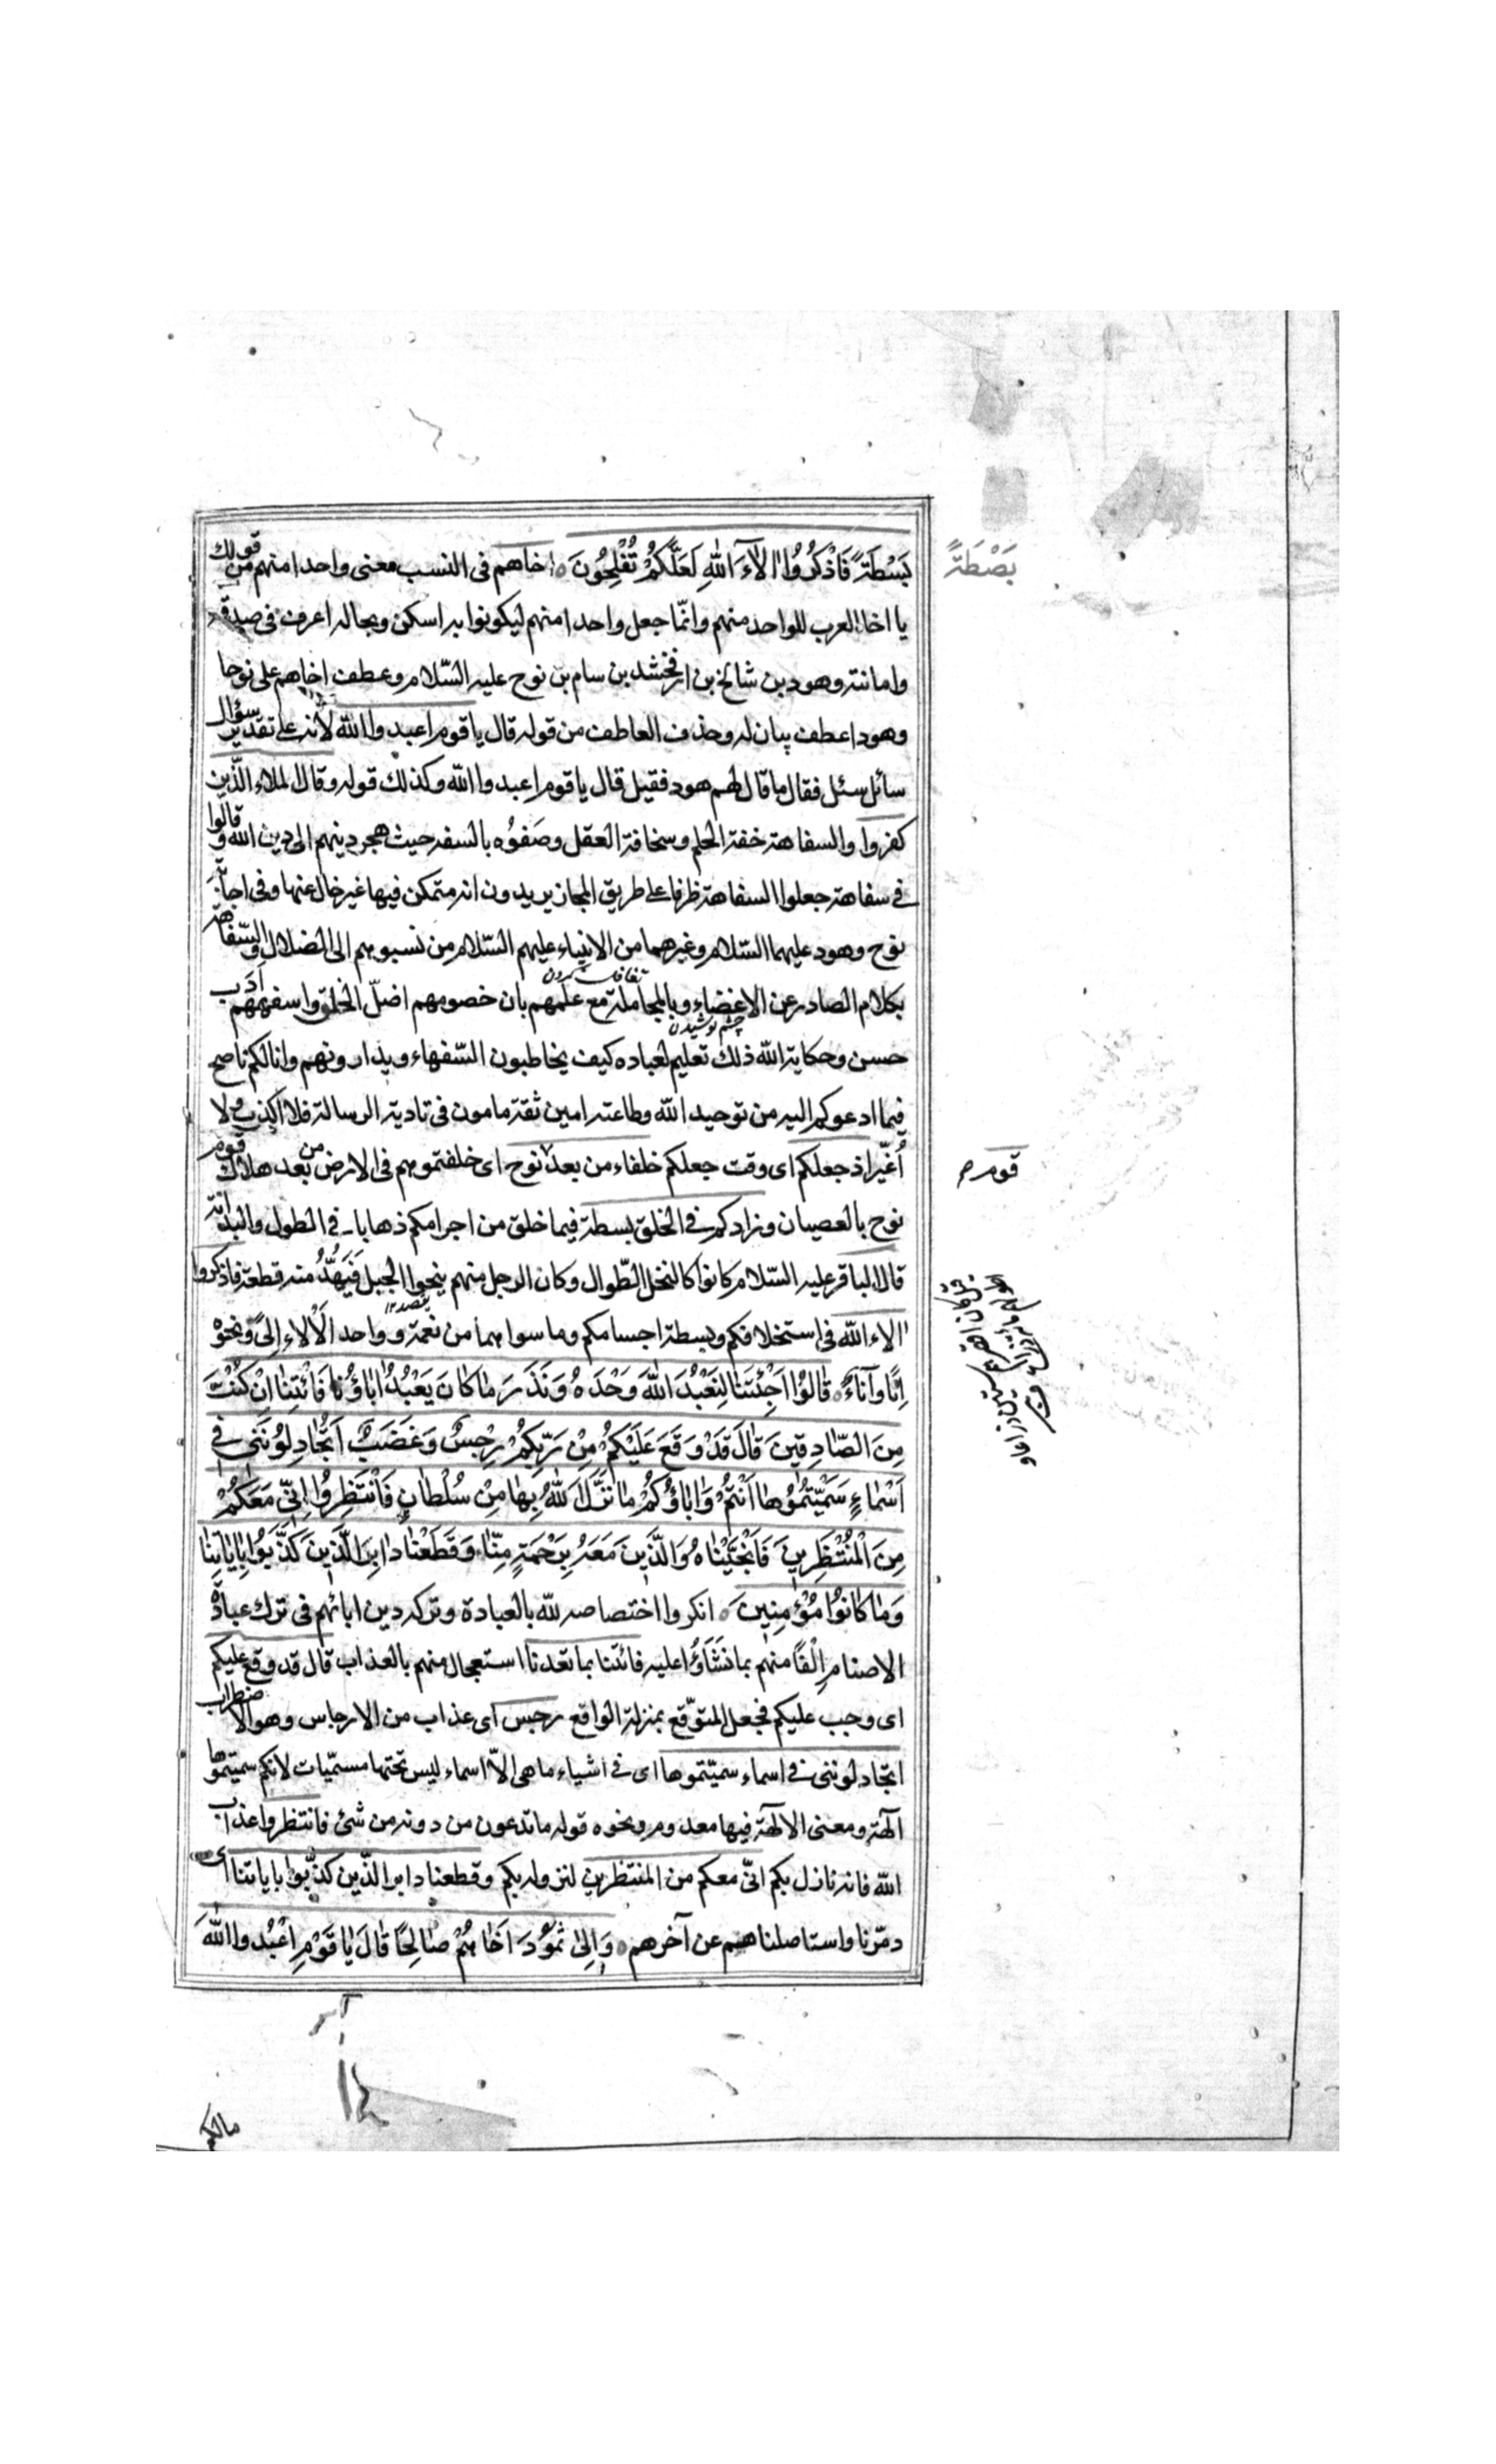 بَسْطَةً فَاذْكُرُوا اٰلَآءَ اللهِ لَعَلَّكُمْ تُفْلِحُونَ ه اخاهم فى النسب معنى واحدا منهم من قولك
بَصْطَةً
يا اخا العرب للواحد منهم وانّما جعل واحدا منهم ليكونوا به اسكن وبحاله اعرف فى صدقه
وامانته وهود بن شالخ بن ارفخشد بن سام بن نوح عليه السّلام وعطف اخاهم على نوحا
وهودا عطف بيان له وحذف العاطف من قوله قال يا قوم اعبدوا الله لانه على تقدير سؤال
سائل سئل فقال ما قال لهم هود فقيل قال يا قوم اعبدوا الله وكذلك قوله وقال الملاء الّذين
كفروا والسفاهة خفة الحلم وسخافة العقل وصَفوُه بالسفه حيث هجر دينهم الى دين الله وقالوا
فى سفاهة جعلوا السفاهة ظرفا على طريق المجاز يريدون انه متمكن فيها غير خال عنها وفى اجابة
نوح وهود عليهما السّلام وغيرهما من الانبياء عليهم السّلام من نسبوهم الى الضلال والسّفاهة
بكلام الصادر عن الاغضاء وبالمجاملة مع علمهم بان خصومهم اضلّ الخلق واسفههم ادب
چشم پوشيدن
حسن وحكاية الله ذلك تعليم لعباده كيف يخاطبون السّفهاء ويدارونهم وانا لكم ناصح
فيما ادعوكم اليه من توحيد الله وطاعته امين ثقة مامون فى تادية الرسالة فلا اكذب ولا
اُغيّر اذ جعلكم اى وقت جعلكم خلفاء من بعد نوح اى خلفتموهم فى الارض من بعد هلاك قوم
قوم م
نوح بالعصيان وزادكم فى الخلق بسطة فيما خلق من اجرامكم ذهابا فى الطول والبدانة
قال الباقر عليه السّلام كانوا كالنخل الطّوال وكان الرجل منهم ينحوا الجبل فَيَهُدُّ منه قطعة فاذكروا
اٰلاء الله فى استخلافكم وبسطة اجسامكم وما سواهما من نعمة وواحد اَلْاٰلاءِ اِلىً ونحوه
اِنًا وآناءً ه قالُوا اَجِئْتَنا لِنَعْبُدَ اللهَ وَحْدَهُ وَنَذَرَ ما كانَ يَعْبُدُ اٰباؤُنا فَائْتِنا اِنْ كُنْتَ
مِنَ الصّادِقِينَ قالَ قَدْ وَقَعَ عَلَيْكُمْ مِنْ رَبِّكُمْ رِجْسٌ وَغَضَبٌ اَتُجادِلُونَنى فى
اَسْماءٍ سَمَّيْتُمُوها اَنْتُمْ وَاٰباؤُكُمْ ما نَزَّلَ اللهُ بِها مِنْ سُلْطانٍ فَانْتَظِرُوا اِنّى مَعَكُمْ
مِنَ الْمُنْتَظِرِينَ فَاَنْجَيْناهُ وَالَّذِينَ مَعَهُ بِرَحْمَةٍ مِنّا وَقَطَعْنا دابِرَ الَّذِينَ كَذَّبُوا بِاٰياتِنا
وَما كانُوا مُؤْمِنِينَ ه انكروا اختصاصه لله بالعبادة وتركه دين ابائهم فى ترك عبادة
الاصنام اِلْفًا منهم بما نَشَاؤُا عليه فائتنا بما تعدنا استعجال منهم بالعذاب قال قد وقع عليكم
اى وجب عليكم فجعل المتوّقع بمنزلة الواقع رجس اى عذاب من الارجاس وهو الاضطراب
اتجادلوننى فى اسماء سميّتموها اى فى اشياء ما هى الاّ اسماء ليس تحتها مسمّيات لانكم سميتموها
آلهة ومعنى الالهة فيها معدوم ونحوه قوله ما تدعون من دونه من شئ فانتظروا عذاب
الله فانه نازل بكم انّى معكم من المنتظرين لنزوله بكم وقطعنا دابر الّذين كذّبوا باياتنا اى
دمّرنا واستاصلناهم عن آخرهم ه وَاِلىٰ ثَمُودَ اَخاهُمْ صالِحًا قالَ يا قَوْمِ اعْبُدوا اللهَ
مالكم